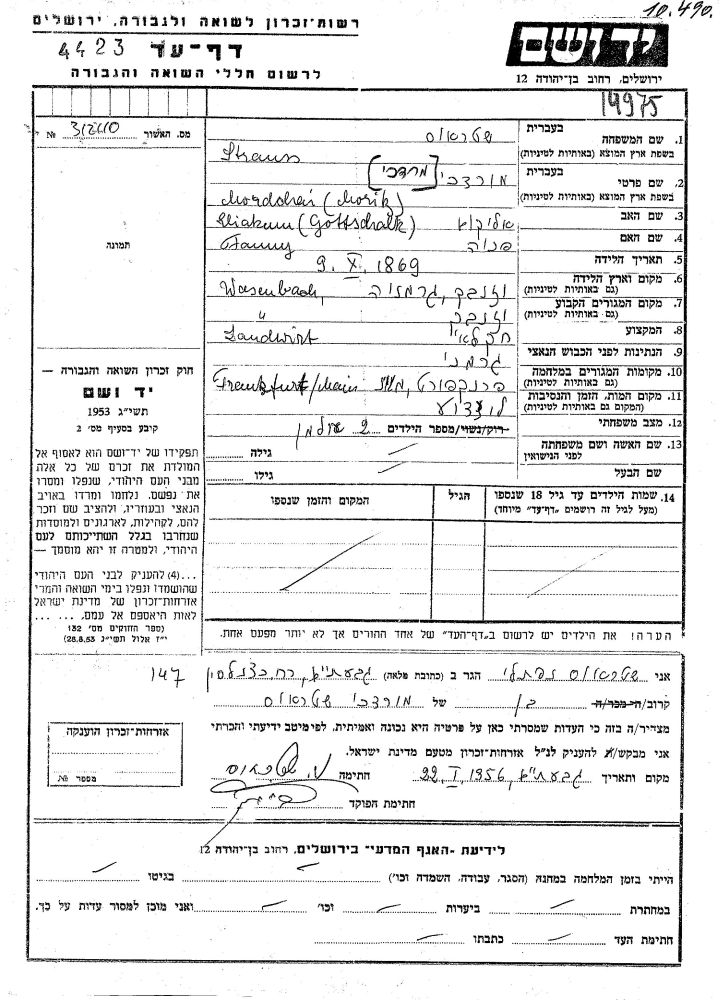 10.490.
רשות־זכרון לשואה ולגבורה, ירושלים
4423 דף־עד
לרשום חללי השואה והגבורה
יד ושם
ירושלים, רחוב בן־יהודה 12
14975
מס. האשור № 312610
תמונה
חוק זכרון השואה והגבורה —
יד ושם
תשי״ג 1953
קובע בסעיף מס׳ 2
תפקידו של יד־ושם הוא לאסוף אל
המולדת את זכרם של כל אלה
מבני העם היהודי, שנפלו ומסרו
את נפשם. נלחמו ומרדו באויב
הנאצי ובעוזריו, ולהציב שם וזכר
להם, לקהילות, לארגונים ולמוסדות
שנחרבו בגלל השתייכותם לעם
היהודי, ולמטרה זו יהא מוסמך —
...(4) להעניק לבני העם היהודי
שהושמדו ונפלו בימי השואה והמרי
אזרחות־זכרון של מדינת ישראל
לאות היאספם אל עמם. ... ...
(ספר החוקים מס׳ 132
י״ז אלול תשי״ג 28.8.53)
1. שם המשפחה בעברית שטראוס
בשפת ארץ המוצא (באותיות לטיניות) Strauss
2. שם פרטי בעברית מורדכי [מרדכי]
בשפת ארץ המוצא (באותיות לטיניות) Mordchai (Morik)
3. שם האב אליקום Eliakum (Gottschalk)
4. שם האם פניה Fanny
5. תאריך הלידה 9. X. 1869
6. מקום וארץ הלידה (גם באותיות לטיניות) וזנבך, גרמניה Wasenbach,
7. מקום המגורים הקבוע (גם באותיות לטיניות) וזנבך "
8. המקצוע חקלאי Landwirt
9. הנתינות לפני הכבוש הנאצי גרמני
10. מקומות המגורים במלחמה (גם באותיות לטיניות) פרנקפורט, מין Frankfurt/Main
11. מקום המות, הזמן והנסיבות (המקום גם באותיות לטיניות) לא ידוע
12. מצב משפחתי רוק/נשוי/מספר הילדים 2 אלמן
13. שם האשה ושם משפחתה לפני הנישואין גילה
שם הבעל גילו
14. שמות הילדים עד גיל 18 שנספו (מעל לגיל זה רושמים „דף־עד״ מיוחד) הגיל המקום והזמן שנספו
הערה! את הילדים יש לרשום ב„דף־העד״ של אחד ההורים אך לא יותר מפעם אחת.
אני שטראוס נפתלי הגר ב (כתובת מלאה) גבעתיים, רח. כצנלסון 147
קרוב/ה־מכר/ה בן של מורדכי שטראוס
מצהיר/ה בזה כי העדות שמסרתי כאן על פרטיה היא נכונה ואמיתית, לפי מיטב ידיעתי והכרתי
אני מבקש/ת להעניק לנ״ל אזרחות־זכרון מטעם מדינת ישראל.
מקום ותאריך גבעתיים, 22. I. 1956 חתימה נ. שטראוס
חתימת הפוקד
אזרחות־זכרון הוענקה
מספר №
לידיעת „האגף המדעי״ בירושלים, רחוב בן־יהודה 12
הייתי בזמן המלחמה במחנה (הסגר, עבודה, השמדה וכו׳) — בגיטו —
במחתרת — ביערות — וכו׳ — ואני מוכן למסור עדות על כך.
חתימת העד — כתבתו —